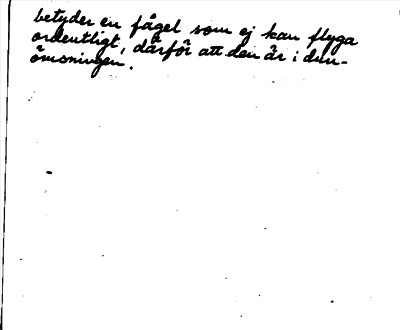 betyder en fågel som ej kan flyga
ordentligt, därför att den är i dun-
ömsningen.